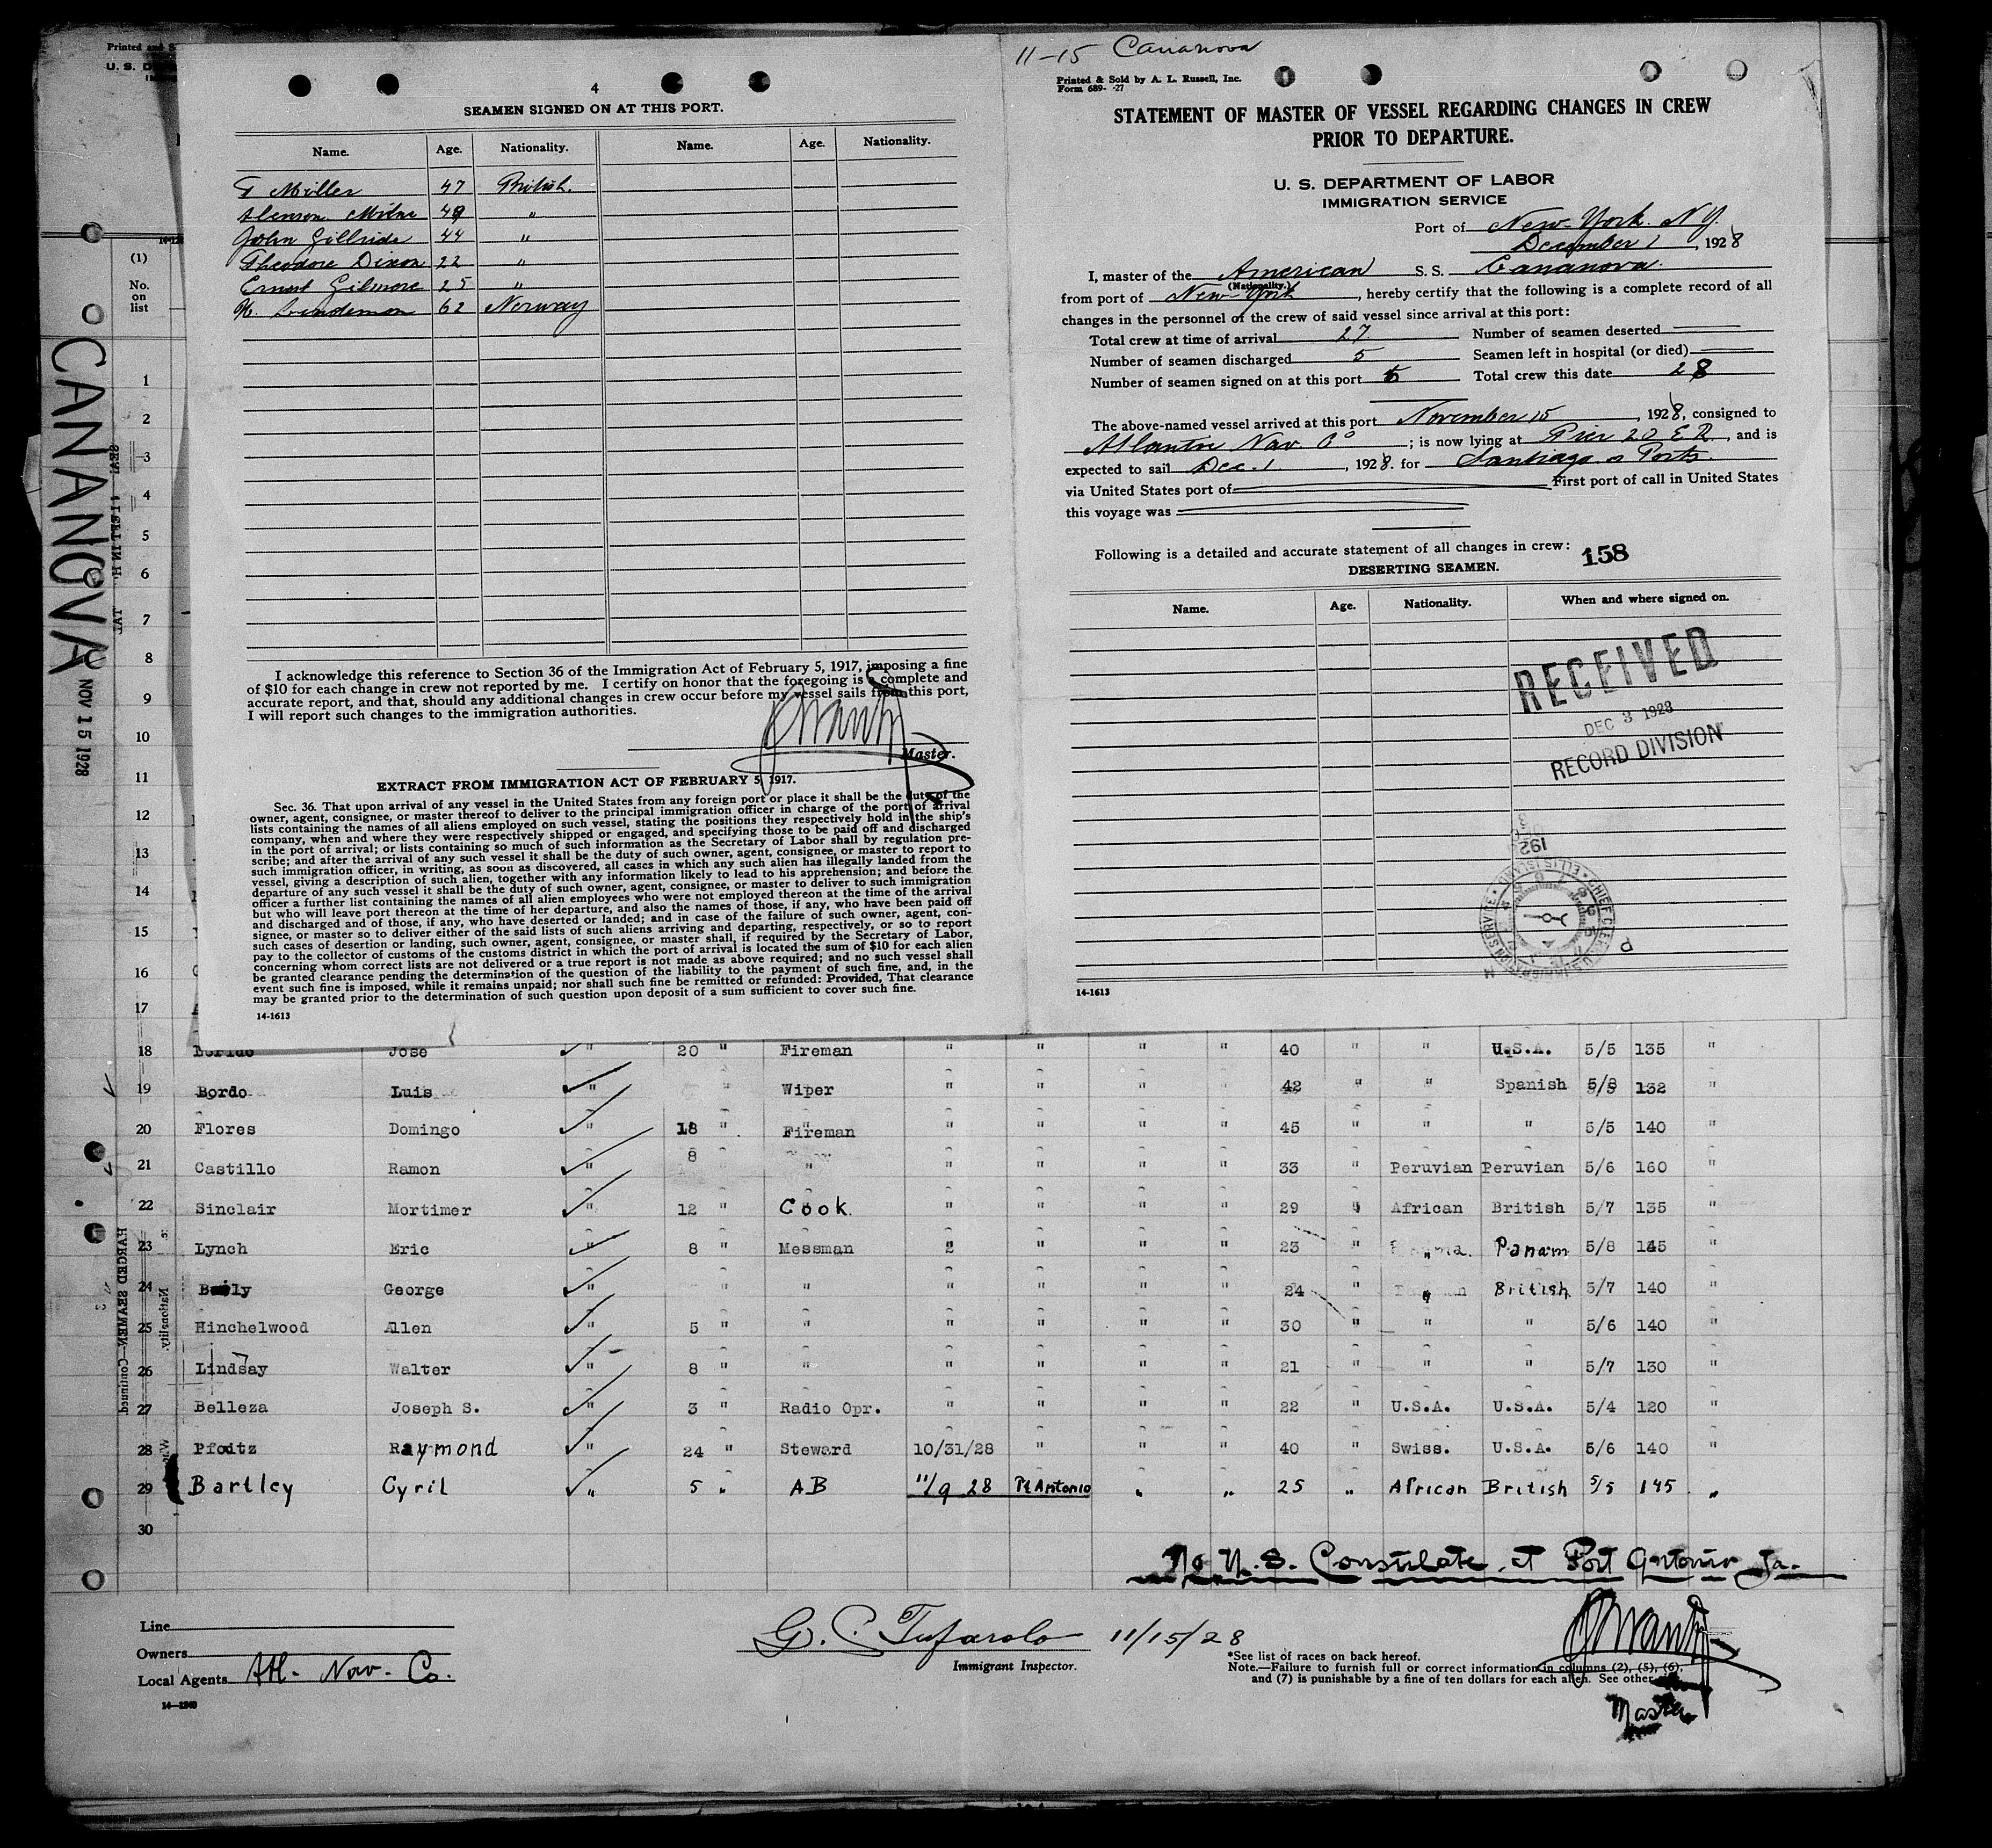 CANANOVA
NOV 15 1928
Printed and S
U. S. D
4
SEAMEN SIGNED ON AT THIS PORT.
Name. Age. Nationality. Name. Age. Nationality.
Miller 47 British.
Milne 49 "
John Gillride 44 "
Theodore Dixon 22 "
Ernest Gilmore 25 "
Lindeman 62 Norway
I acknowledge this reference to Section 36 of the Immigration Act of February 5, 1917, imposing a fine
of $10 for each change in crew not reported by me. I certify on honor that the foregoing is a complete and
accurate report, and that, should any additional changes in crew occur before my vessel sails from this port,
I will report such changes to the immigration authorities.
Master.
EXTRACT FROM IMMIGRATION ACT OF FEBRUARY 5, 1917.
Sec. 36. That upon arrival of any vessel in the United States from any foreign port or place it shall be the duty of the
owner, agent, consignee, or master thereof to deliver to the principal immigration officer in charge of the port of arrival
lists containing the names of all aliens employed on such vessel, stating the positions they respectively hold in the ship's
company, when and where they were respectively shipped or engaged, and specifying those to be paid off and discharged
in the port of arrival; or lists containing so much of such information as the Secretary of Labor shall by regulation pre-
scribe; and after the arrival of any such vessel it shall be the duty of such owner, agent, consignee, or master to report to
such immigration officer, in writing, as soon as discovered, all cases in which any such alien has illegally landed from the
vessel, giving a description of such alien, together with any information likely to lead to his apprehension; and before the
departure of any such vessel it shall be the duty of such owner, agent, consignee, or master to deliver to such immigration
officer a further list containing the names of all alien employees who were not employed thereon at the time of the arrival
but who will leave port thereon at the time of her departure, and also the names of those, if any, who have been paid off
and discharged and of those, if any, who have deserted or landed; and in case of the failure of such owner, agent, con-
signee, or master so to deliver either of the said lists of such aliens arriving and departing, respectively, or so to report
such cases of desertion or landing, such owner, agent, consignee, or master shall, if required by the Secretary of Labor,
pay to the collector of customs of the customs district in which the port of arrival is located the sum of $10 for each alien
concerning whom correct lists are not delivered or a true report is not made as above required; and no such vessel shall
be granted clearance pending the determination of the question of the liability to the payment of such fine, and, in the
event such fine is imposed, while it remains unpaid; nor shall such fine be remitted or refunded: Provided, That clearance
may be granted prior to the determination of such question upon deposit of a sum sufficient to cover such fine.
14-1613
11-15 Cananova
Printed & Sold by A. L. Russell, Inc.
Form 689- -27
STATEMENT OF MASTER OF VESSEL REGARDING CHANGES IN CREW
PRIOR TO DEPARTURE.
U. S. DEPARTMENT OF LABOR
IMMIGRATION SERVICE
Port of New York. N.Y.
December 1, 1928
I, master of the American S. S. Cananova.
(Nationality.)
from port of New York, hereby certify that the following is a complete record of all
changes in the personnel of the crew of said vessel since arrival at this port:
Total crew at time of arrival 27. Number of seamen deserted
Number of seamen discharged 5 Seamen left in hospital (or died)
Number of seamen signed on at this port Total crew this date 28
The above-named vessel arrived at this port November 15, 1928, consigned to
Atlantic Nav Co; is now lying at Pier 20 E R, and is
expected to sail Dec. 1, 1928. for Santiago Ports.
via United States port of First port of call in United States
this voyage was
Following is a detailed and accurate statement of all changes in crew: 158
DESERTING SEAMEN.
Name. Age. Nationality. When and where signed on.
RECEIVED
DEC 3 1928
RECORD DIVISION
14-1613
(1)
No.
on
list
1
2
3
4
5
6
7
8
9
10
11
12
13
14
15
16
17
18 Jose " 20 " Fireman " " " " 40 " " U.S.A. 5/5 135 "
19 Bordo Luis " " Wiper " " " " 42 " " Spanish 5/8 132 "
20 Flores Domingo " 18 " Fireman " " " " 45 " " " 5/5 140 "
21 Castillo Ramon " 8 " " " " " 33 " Peruvian Peruvian 5/6 160 "
22 Sinclair Mortimer " 12 " Cook. " " " " 29 " African British 5/7 135 "
23 Lynch Eric " 8 " Messman " " " 23 " " Panam 5/8 145 "
24 George " " " " " " " 24 " " British 5/7 140 "
25 Hinchelwood Allen " 5 " " " " " " 30 " " " 5/6 140 "
26 Lindsay Walter " 8 " " " " " " 21 " " " 5/7 130 "
27 Belleza Joseph S. " 3 " Radio Opr. " " " " 22 " U.S.A. U.S.A. 5/4 120 "
28 Raymond " 24 " Steward 10/31/28 " " " 40 " Swiss. U.S.A. 5/6 140 "
29 Bartley Cyril " 5 " AB 11/9 28 Pt Antonio " " 25 " African British 5/5 145 "
30
No U.S. Consulate at Port Antonio Ja.
Line
Owners
Local Agents Atl- Nav- Co.
14-1240
G. C. Tufarolo 11/15/28
Immigrant Inspector.
*See list of races on back hereof.
Note.—Failure to furnish full or correct information in columns (2), (5), (6),
and (7) is punishable by a fine of ten dollars for each alien. See other
Master